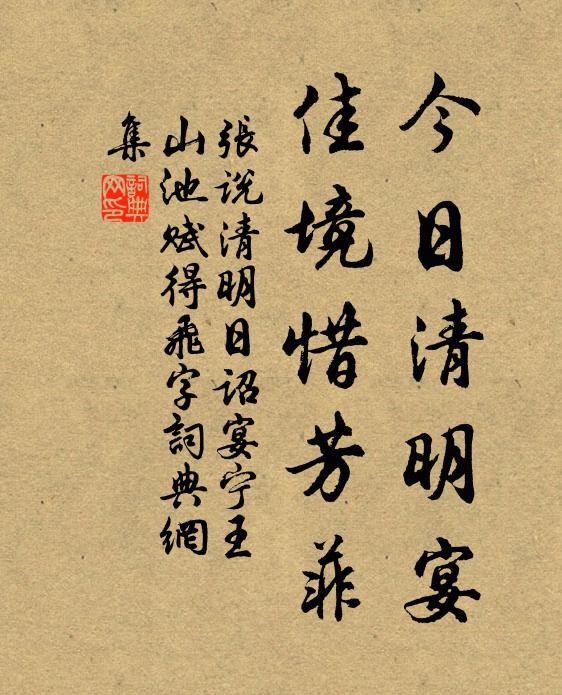 今日清明宴
佳境惜芳菲
張说清明日诏宴宁王
山池赋得飛字詞典網
集
詞典網印